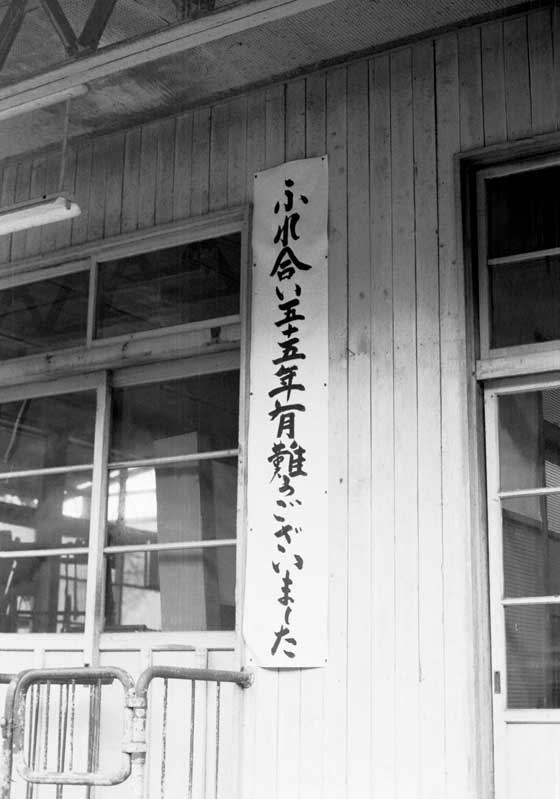 ふれ合い五十五年有難うございました